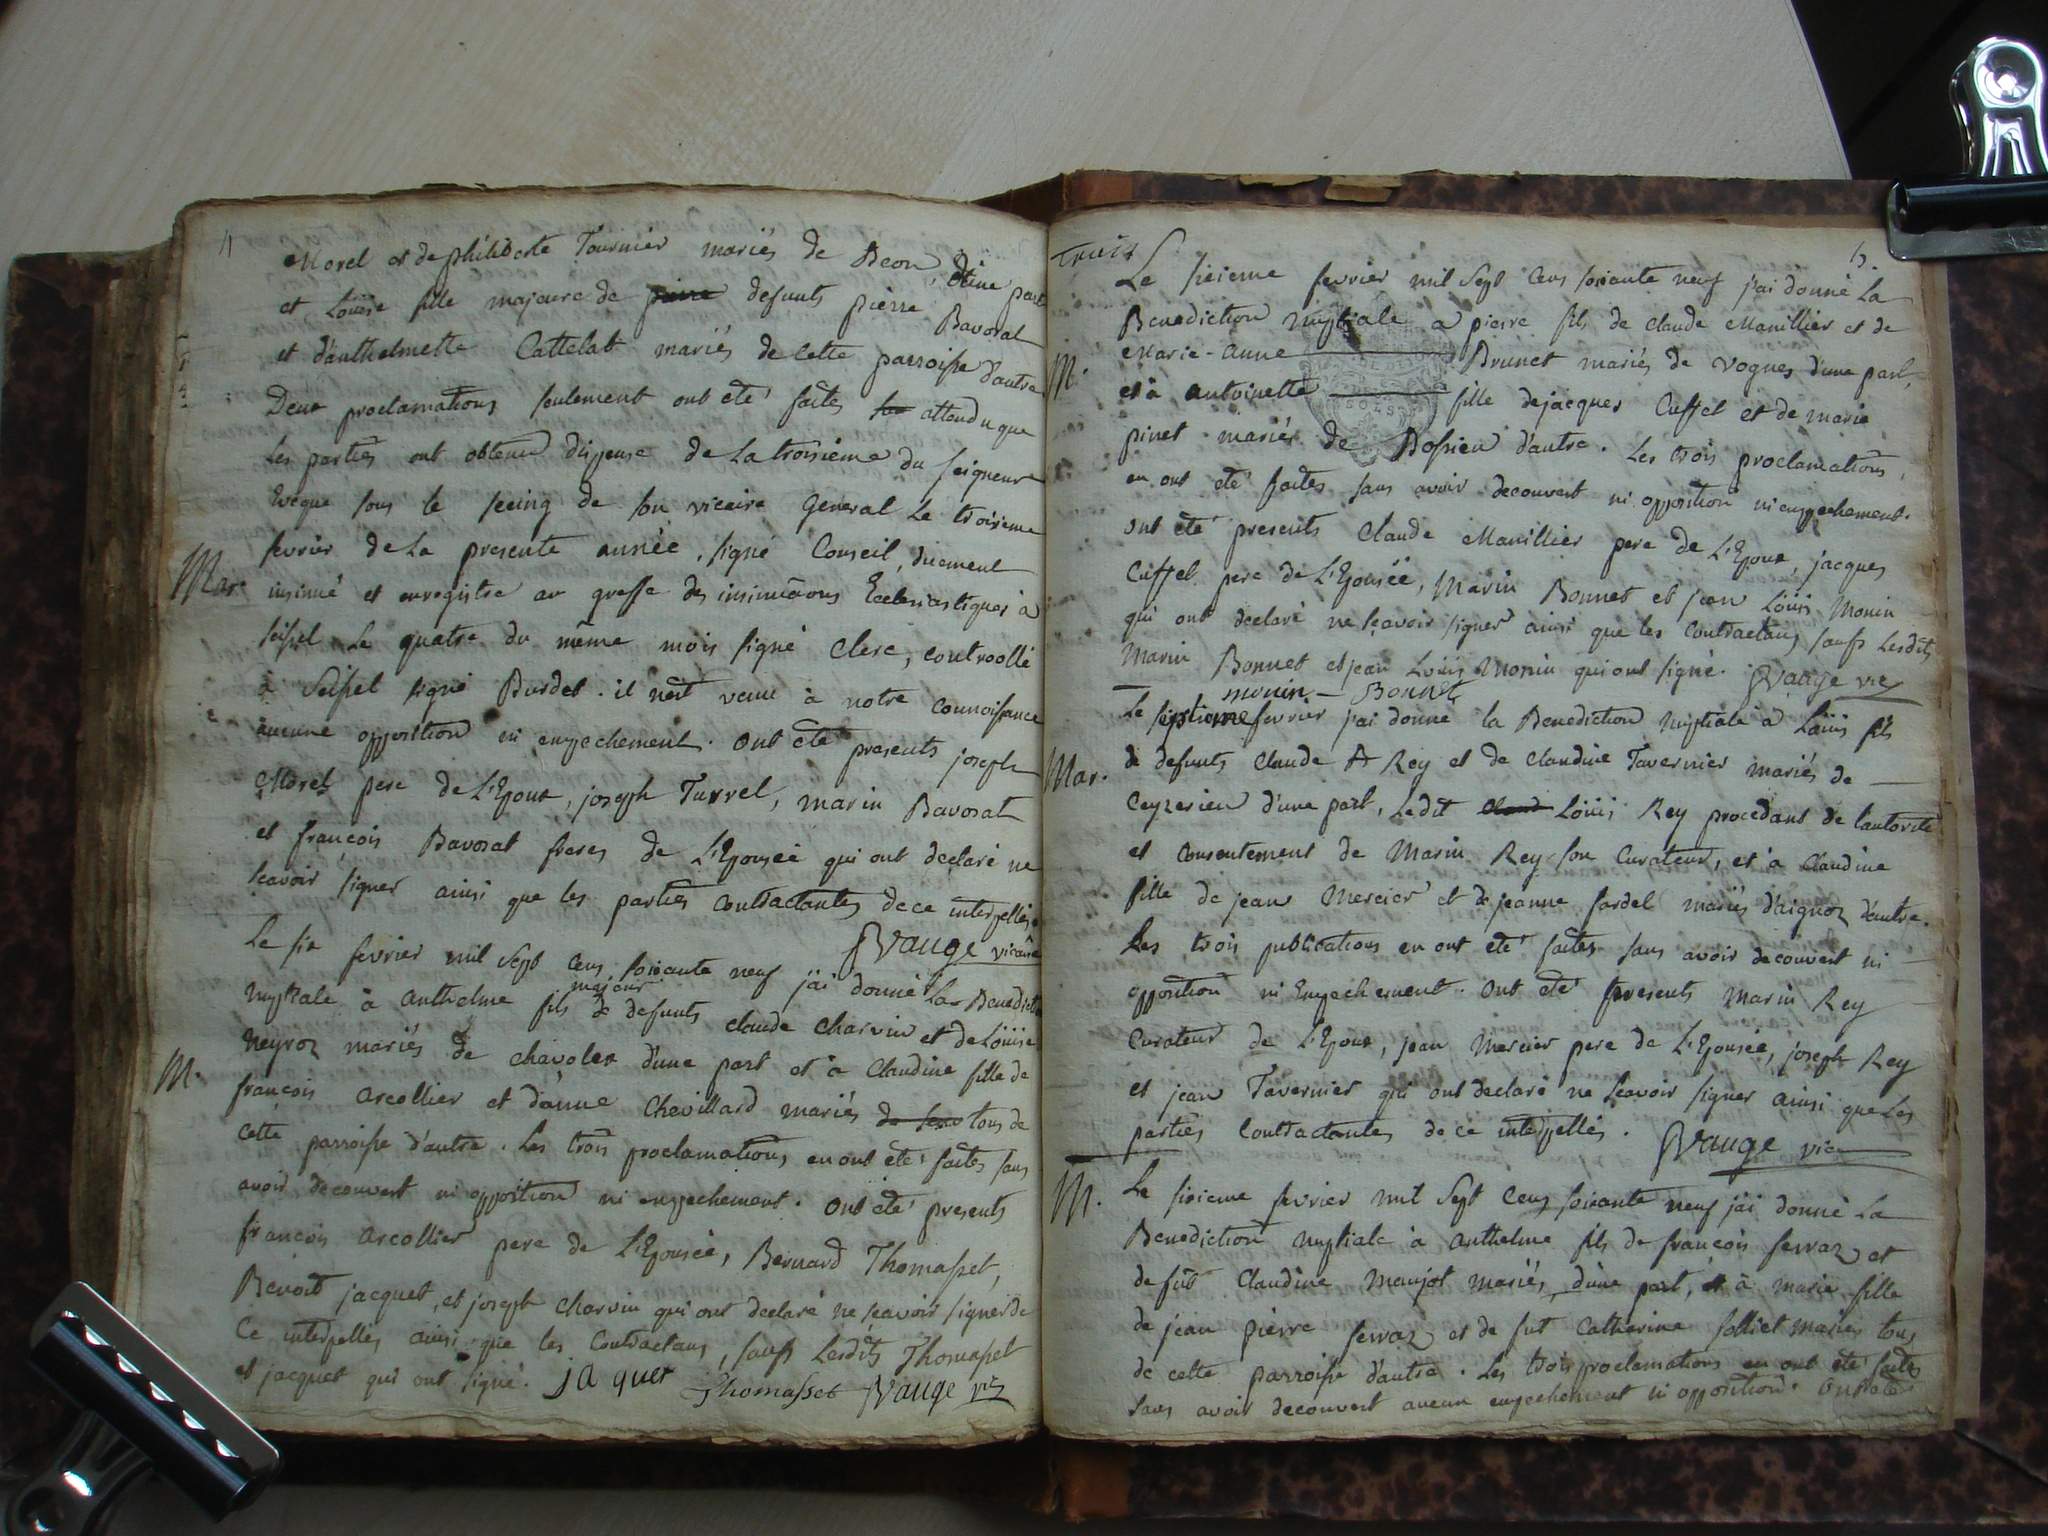 4
Morel et de philiberte Tournier mariés de Beon, d'une part
et Loüise fille majeure de pierre defunts pierre Bavosat
et d'anthelmette Cattelat mariés de cette parroisse d'autre
Deux proclamations seulement ont été faites attendu que
les parties ont obtenu dispense de la troisieme du seigneur
Eveque sous le seeing de son vicaire General le troisieme
Mar. fevrier de la presente année, signé Conseil, duement
insinué et enregistré au greffe des insinuãons Ecclesiastiques à
seissel le quatre du même mois signé Clerc, controollé
à Seissel signé Burdet. il n'est venu à notre connoissance
aucune opposition ni empechement. Ont eté presents joseph
Morel pere de L'Epoux, joseph Turrel, marin Bavosat
et françois Bavosat freres de L'Epousée qui ont declaré ne
sçavoir signer ainsi que les parties contractantes de ce interpellés.
JVauge vicaire
Le six fevrier mil sept cens soixante neuf j'ai donné La Benedict
majeur
nuptiale à anthelme fils de defunts claude charvin et de Loüise
M. Neyroz mariés de chavolex d'une part et à Claudine fille de
françois arcollier et d'anne Chevillard mariés tous de
cette parroisse d'autre. Les trois proclamations en ont été faites sans
avoir decouvert ni opposition ni empechement. Ont eté presents
françois arcollier pere de L'Epousée, Bernard Thomasset,
Benoit jacquet, et joseph charvin qui ont declaré ne sçavoir signer de
Ce interpellés ainsi que les Contractans, sauf Lesdits Thomasset
et jacquet qui ont signé. ja quet Thomasset JVauge vic
5.
Le sixieme fevrier mil sept cens soixante neuf j'ai donné La
Benediction nuptiale à pierre fils de claude Manillier et de
M. Marie-anne Brunet mariés de vognes d'une part,
et à antoinette fille de jacques Cuffel et de marie
pinet mariés de Dossieu d'autre. Les trois proclamations
en ont eté faites sans avoir decouvert ni opposition ni empechement.
ont eté presents Claude Manillier pere de L'Epoux, jacques
Cuffel pere de L'Epousée, Marin Bonnet et jean Loüis Monin
qui ont declaré ne sçavoir signer ainsi que les Contractans, sauf Lesdits
Marin Bonnet et jean Loüis Monin qui ont signé. JVauge vic
monin Bonnet
Le septieme fevrier j'ai donné la Benediction nuptiale à Loüis fils
Mar. de defunts Claude Rey et de Claudine Tavernier mariés de
Ceyzerieu d'une part, Ledit Loüis Rey procedant de l'autorité
et consentement de Marin Rey son Curateur, et à Claudine
fille de jean Mercier et de jeanne fardel mariés d'aignoz d'autre.
Les trois publications en ont eté faites sans avoir decouvert ni
opposition ni Empechement. Ont eté presents Marin Rey
Curateur de L'Epoux, jean Mercier pere de L'Epousée, joseph Rey
et jean Tavernier qui ont declaré ne sçavoir signer ainsi que Les
parties Contractantes de ce interpellés. JVauge vic
M. Le sixieme fevrier mil sept cens soixante neuf j'ai donné La
Benediction nuptiale à anthelme fils de françois ferraz et
de fut Claudine Manjot mariés, d'une part, et à marie fille
de jean pierre ferraz et de fut Catherine folliet mariés tous
de cette parroisse d'autre. Les trois proclamations en ont eté faites
sans avoir decouvert aucun empechement ni opposition. Ont eté